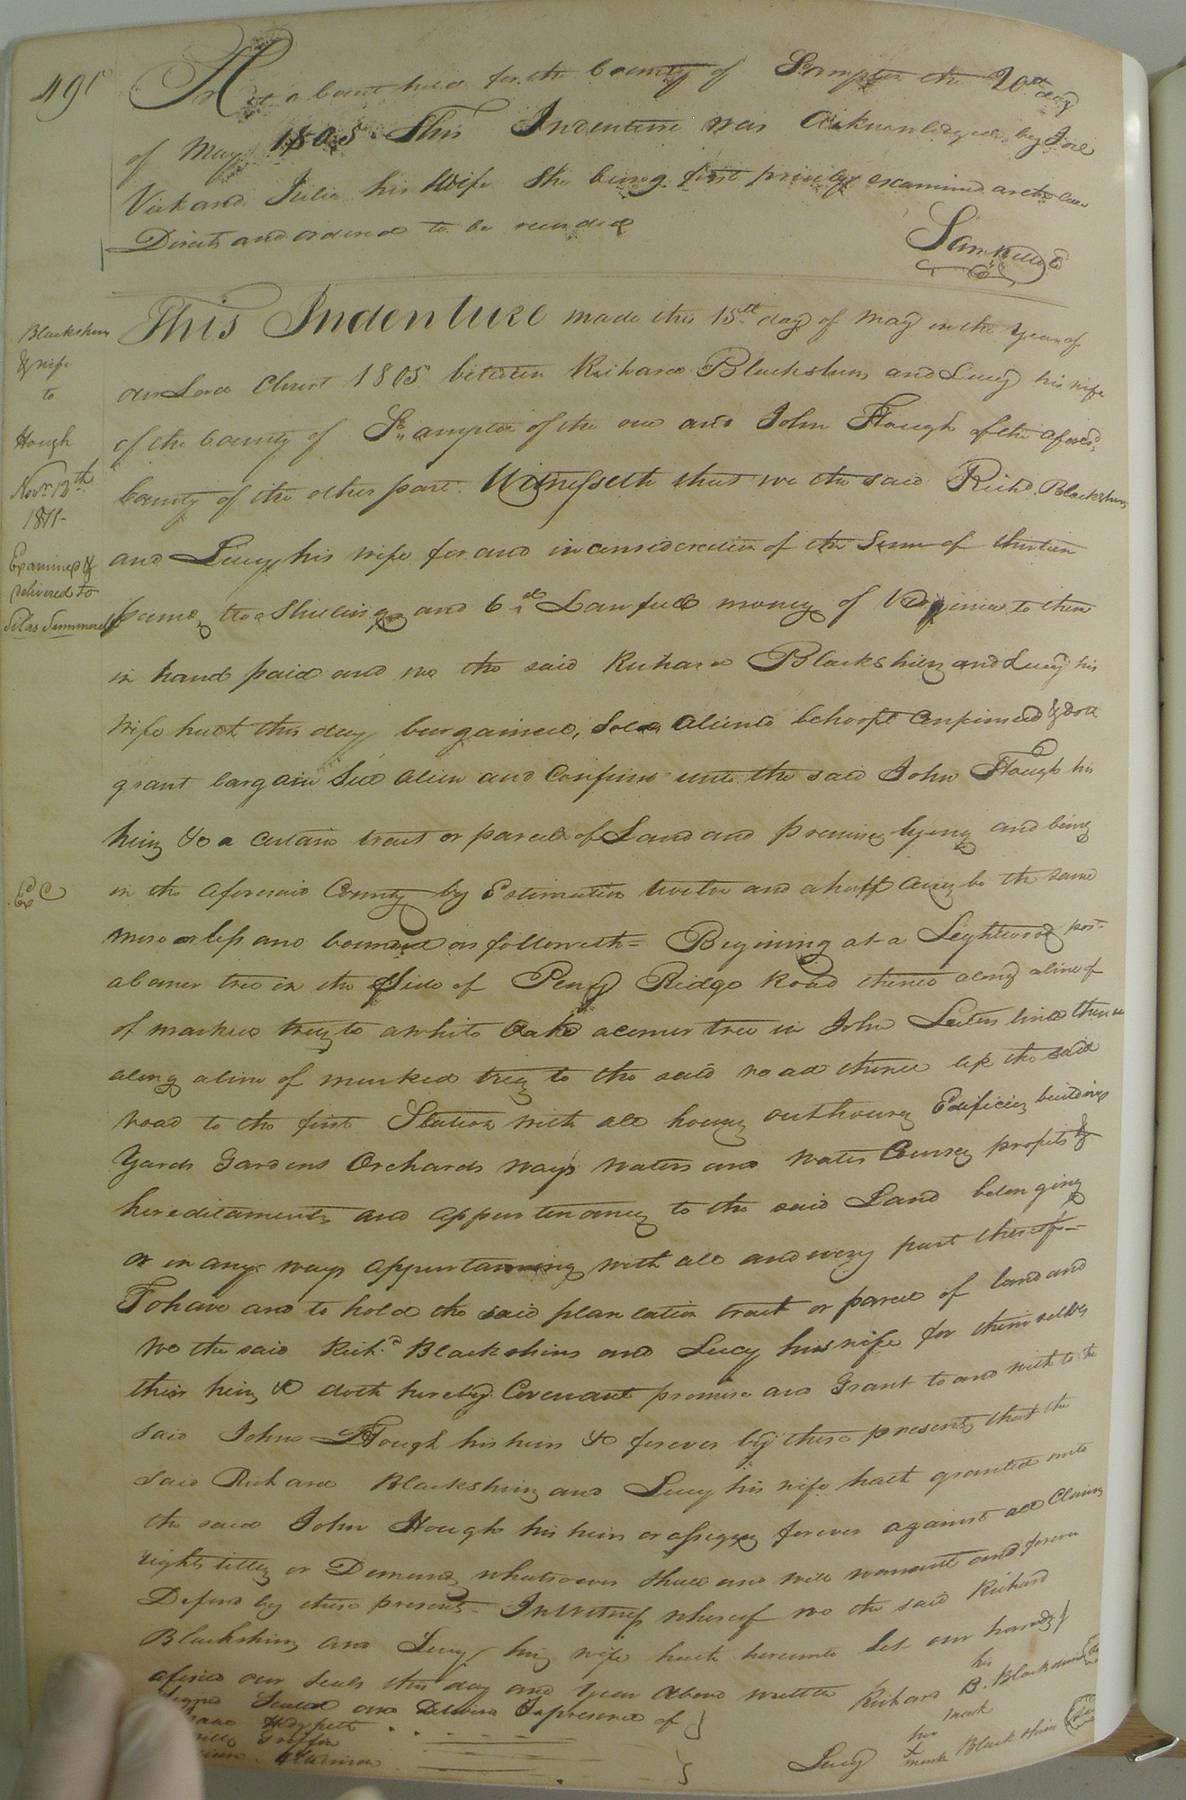 491
At a Court held for the County of Southampton the 20th day
of May 1805 This Indenture was Acknowledged by Joel
Vick and Julia his Wife She being first privily examined as the Law
Directs and ordered to be recorded
Sam Kello C
Blackshins
& wife
to
Hough
Novr 12th
1811-
Examined &
delivered to
Silas Summerell
Ex C
This Indenture made this 15th day of May in the Year of
our Lord Christ 1805 between Richard Blackshins and Lucy his wife
of the County of So,,ampton of the one and John Hough of the aforesd
County of the other part. Witnesseth that we the said Richd. Blackshins
and Lucy his wife for and in consideration of the Sum of thirteen
pounds two Shillings and 6d Lawfull money of Virginia to them
in hand paid and we the said Richard Blackshins and Lucy his
Wife hath this day bargained, Sold Aliend behooft Confirmed & doth
grant bargain Sell Alien and Confirm unto the said John Hough his
heirs &c a certain tract or parcel of Land and premises lying and being
in the Aforesaid County by Estimation twelve and a half Acres be the same
more or less and bounded as followeth = Begining at a Lightwood post
a corner tree in the Side of Peney Ridge Road thence along a line of
of marked trees to a white Oake a corner tree in John line thence
along a line of marked trees to the said road thence up the said
road to the first Station with all houses outhouses Edificies buildings
Yards Gardens Orchards ways waters and water Courses profits &
hereditaments and appurtenances to the said Land belonging
or in any ways appurtaining with all and every part thereof =
To have and to hold the said plantation tract or parcel of land and
we the said Richd Blackshins and Lucy his wife for themselves
their heirs &c doth hereby Covenant promise and Grant to and with to the
said John Hough his heirs &c forever by these presents that the
said Richard Blackshins and Lucy his wife hath granted unto
the said John Hough his heirs or assigns forever against all Claims
rights titles or Demands whatsoever shall and will warrant and forever
Defend by these presents - In Witness whereof we the said Richard
Blackshins and Lucy his wife hath hereunto Set our hands }
afixed our Seals this day and Year Above written Richard his B. mark Blackshins
Signed Sealed and Delivered In presence of }
Lucy her + mark Blackshins